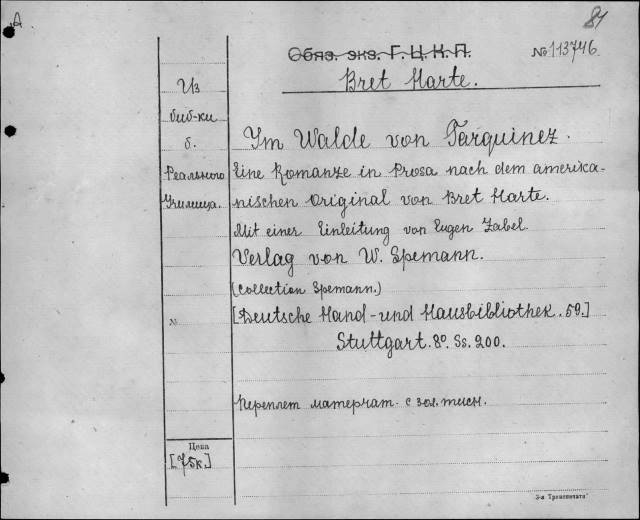 А
84
Обяз. экз. Г. Ц. К. П.
№ 113746.
Bret Harte.
Из
биб-ки
б.
Реального
Училища.
Im Walde von Tarquinez.
Eine Romanze in Prosa nach dem amerika-
nischen Original von Bret Harte.
Mit einer Einleitung von Eugen Zabel.
Verlag von W. Spemann.
(Collection Spemann.)
№
[Deutsche Hand- und Hausbibliothek. 59.]
Stuttgart. 8º. Ss. 200.
Переплет матерчат. с зол. тисн.
Цена
[75к.]
3-я Трансpечати